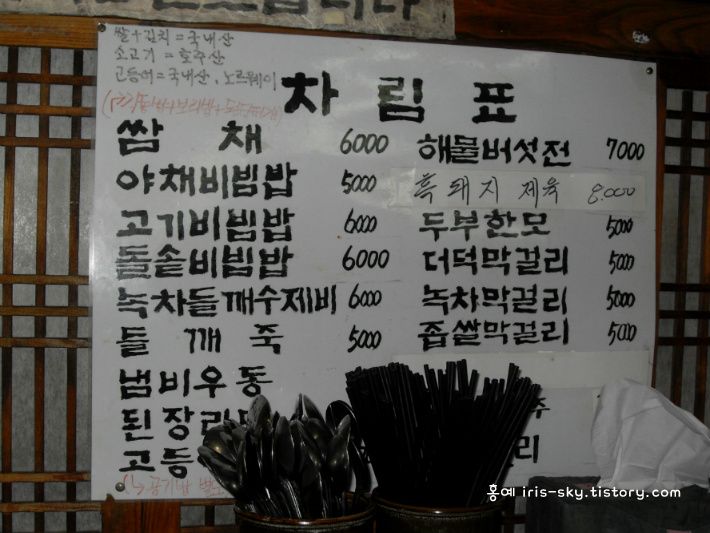 쌀+김치=국내산
소고기=호주산
고등어=국내산, 노르웨이
차림표
쌈채 6000
야채비빔밥 5000
고기비빔밥 6000
돌솥비빔밥 6000
녹차들깨수제비 6000
들깨죽 5000
냄비우동
된장
고등
공기밥
해물버섯전 7000
흑돼지 제육 8.000
두부한모 5000
더덕막걸리 5000
녹차막걸리 5000
좁쌀막걸리 5000
홍예 iris-sky.tistory.com